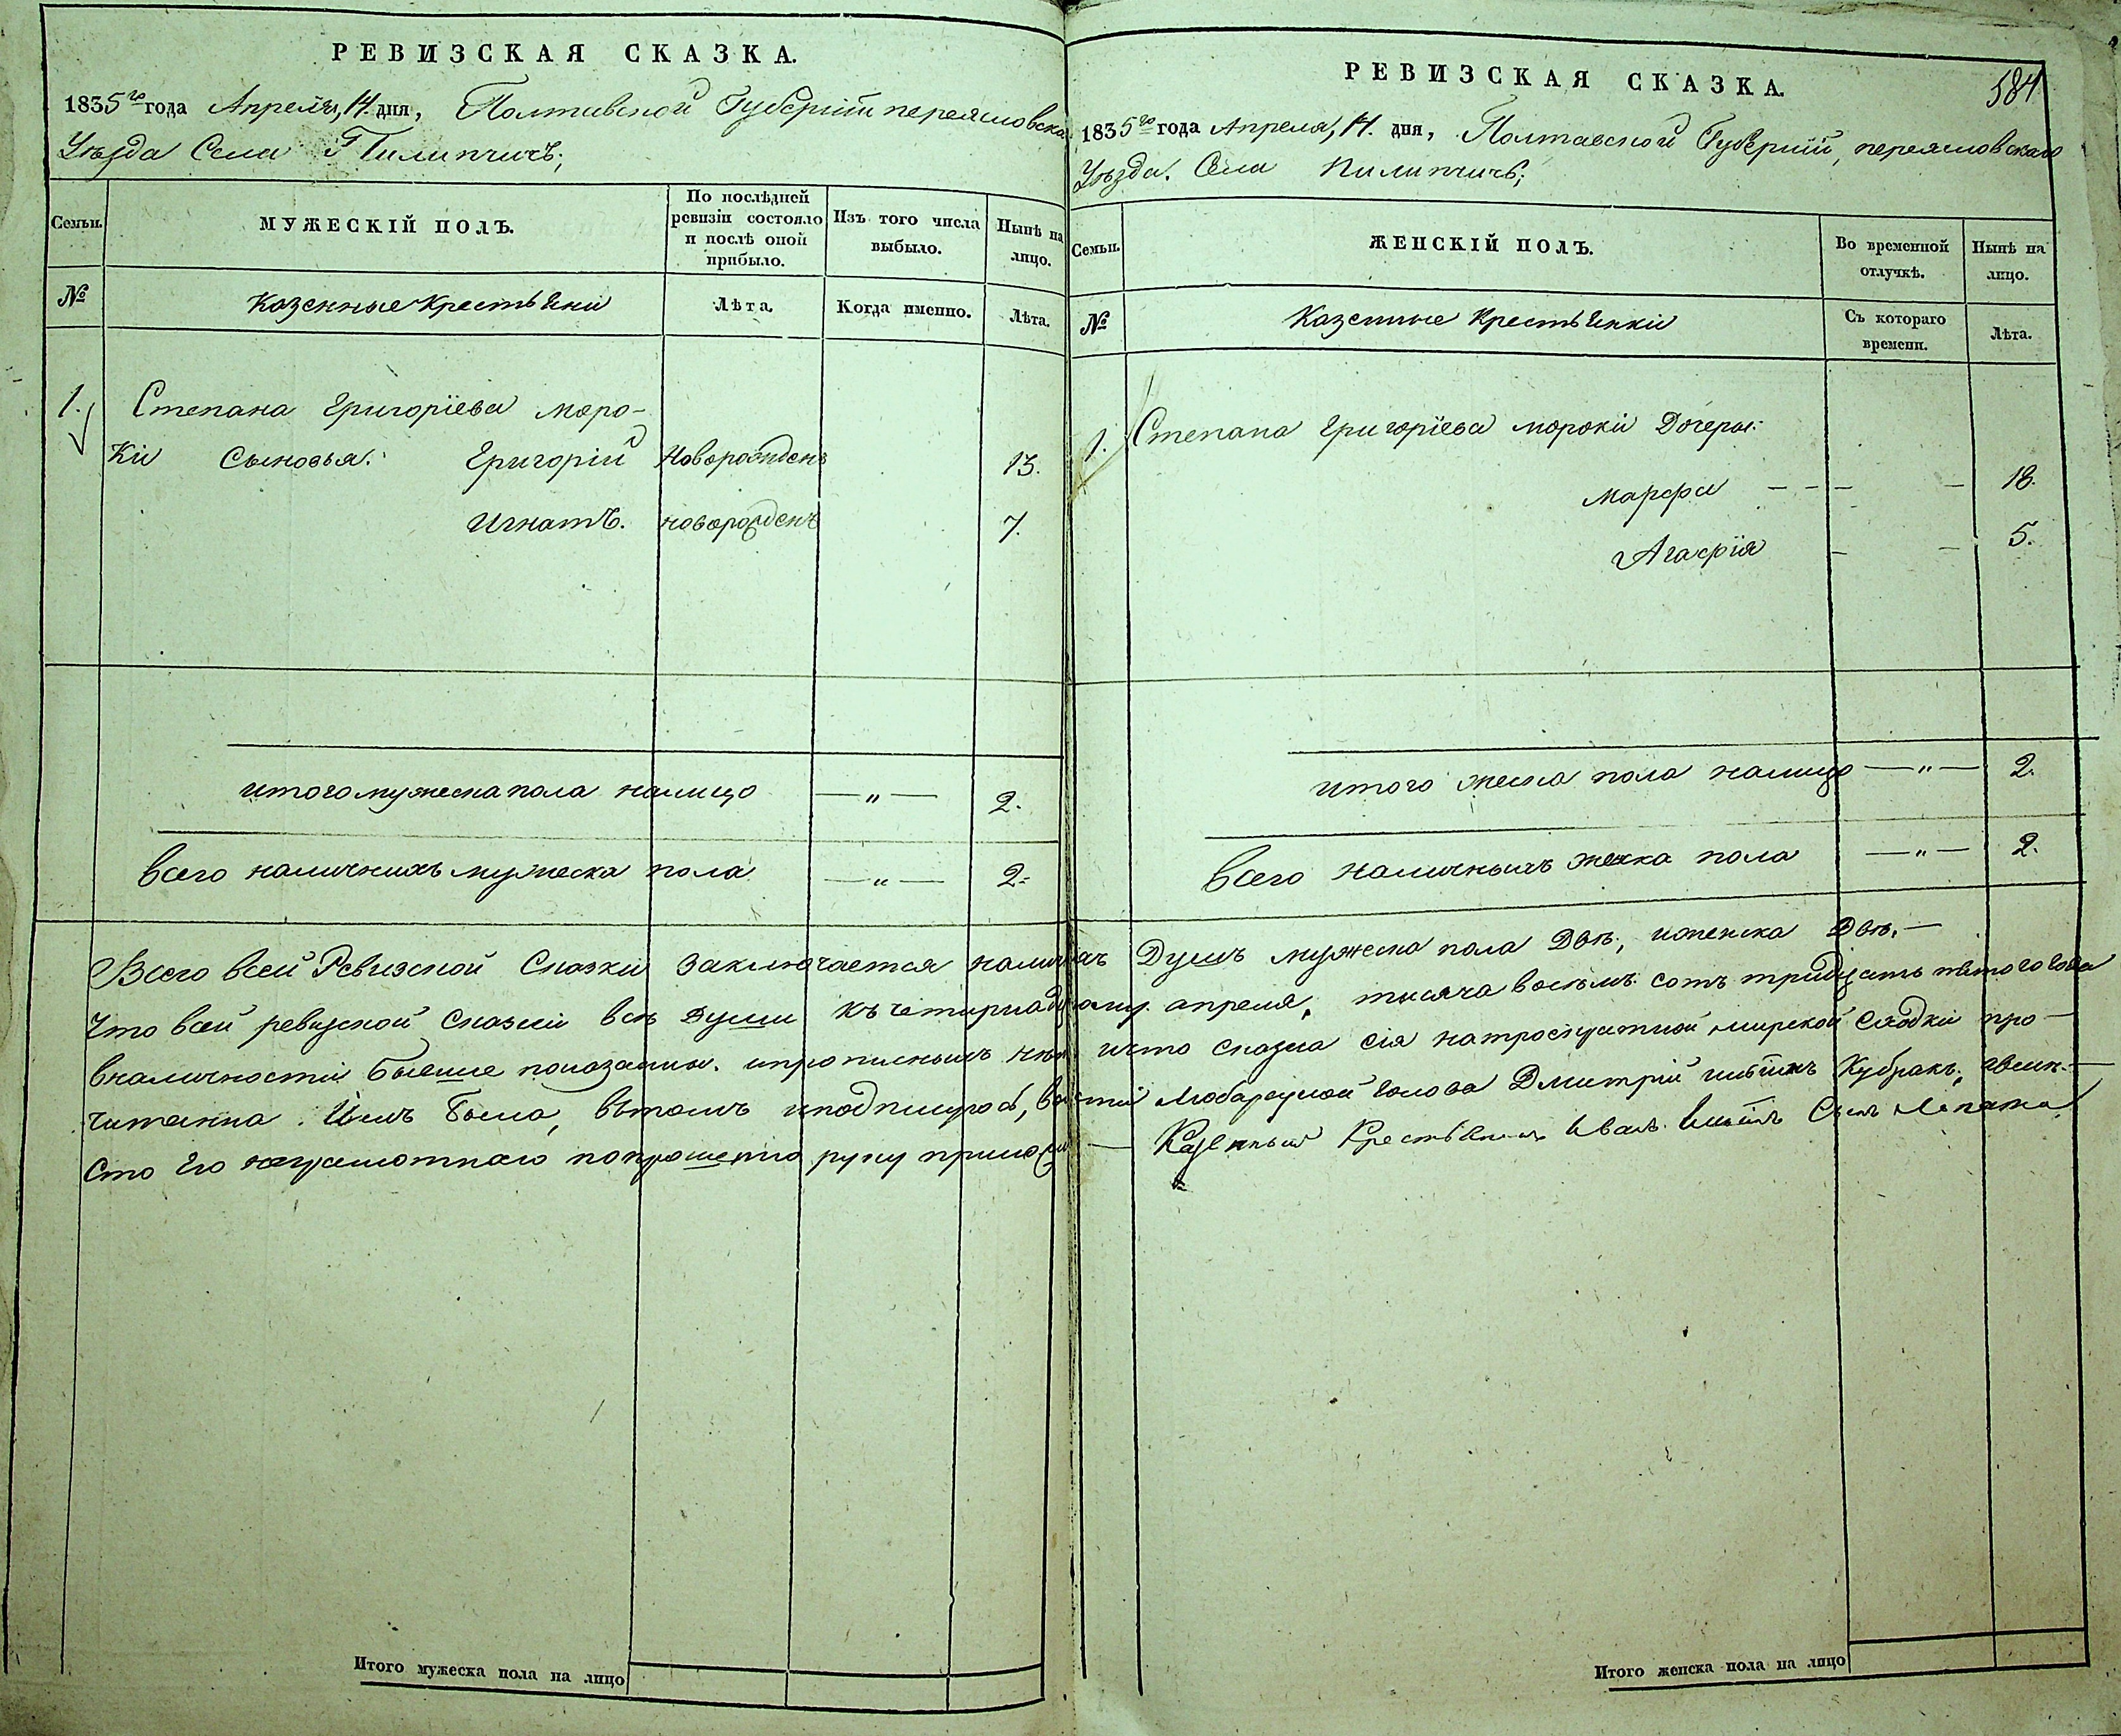 РЕВИЗСКАЯ СКАЗКА.
1835го года Апреля, 14. дня, Полтавской Губерніи переясловска
Уѣзда Села Пилипчичъ;
Семьи.
МУЖЕСКІЙ ПОЛЪ.
По послѣдней ревизіи состояло и послѣ оной прибыло.
Изъ того числа выбыло.
Нынѣ на лицо.
№
Казенные Крестьяни
Лѣта.
Когда именно.
Лѣта.
1. Степана Григоріева моро-
ки Сыновья: Григорій Новорожденъ 13.
Игнатъ. новорожденъ 7.
итого мужеска пола налицо —„— 2.
всего наличнихъ мужеска пола —„— 2.
Итого мужеска пола на лицо
РЕВИЗСКАЯ СКАЗКА.
584
1835го года Апреля, 14. дня, Полтавской Губерніи, переясловскаго
Уѣзда. Села Пилипчичъ;
Семьи.
ЖЕНСКІЙ ПОЛЪ.
Во временной отлучкѣ.
Нынѣ на лицо.
№
Казенные Крестьянки
Съ котораго времени.
Лѣта.
1. Степана Григоріева мороки Дочеры:
Марфа — — — — 18.
Агафія — — 5.
итого женска пола налицо —„— 2.
всего наличныхъ женска пола —„— 2.
Всего всей Ревизской Сказки заключается наличнихъ Душъ мужеска пола Двѣ, иженска Двѣ.—
Что всей ревизской Сказки всѣ Души къ четирнадцатому апреля, тисяча восѣмъ сотъ тридцать пятого года
вналичности бывшие показанны. ипрописныхъ нѣтъ ичто сказка сія мирской сходки про—
читанна. Имъ была, вътомъ иподписуюсь, волости голова Дмитрій Кубракъ,
сто Его неграмотнаго попрошенію руку приложилъ — Казенный Крестьянинъ Иванъ Сынъ Лопата
Итого женска пола на лицо